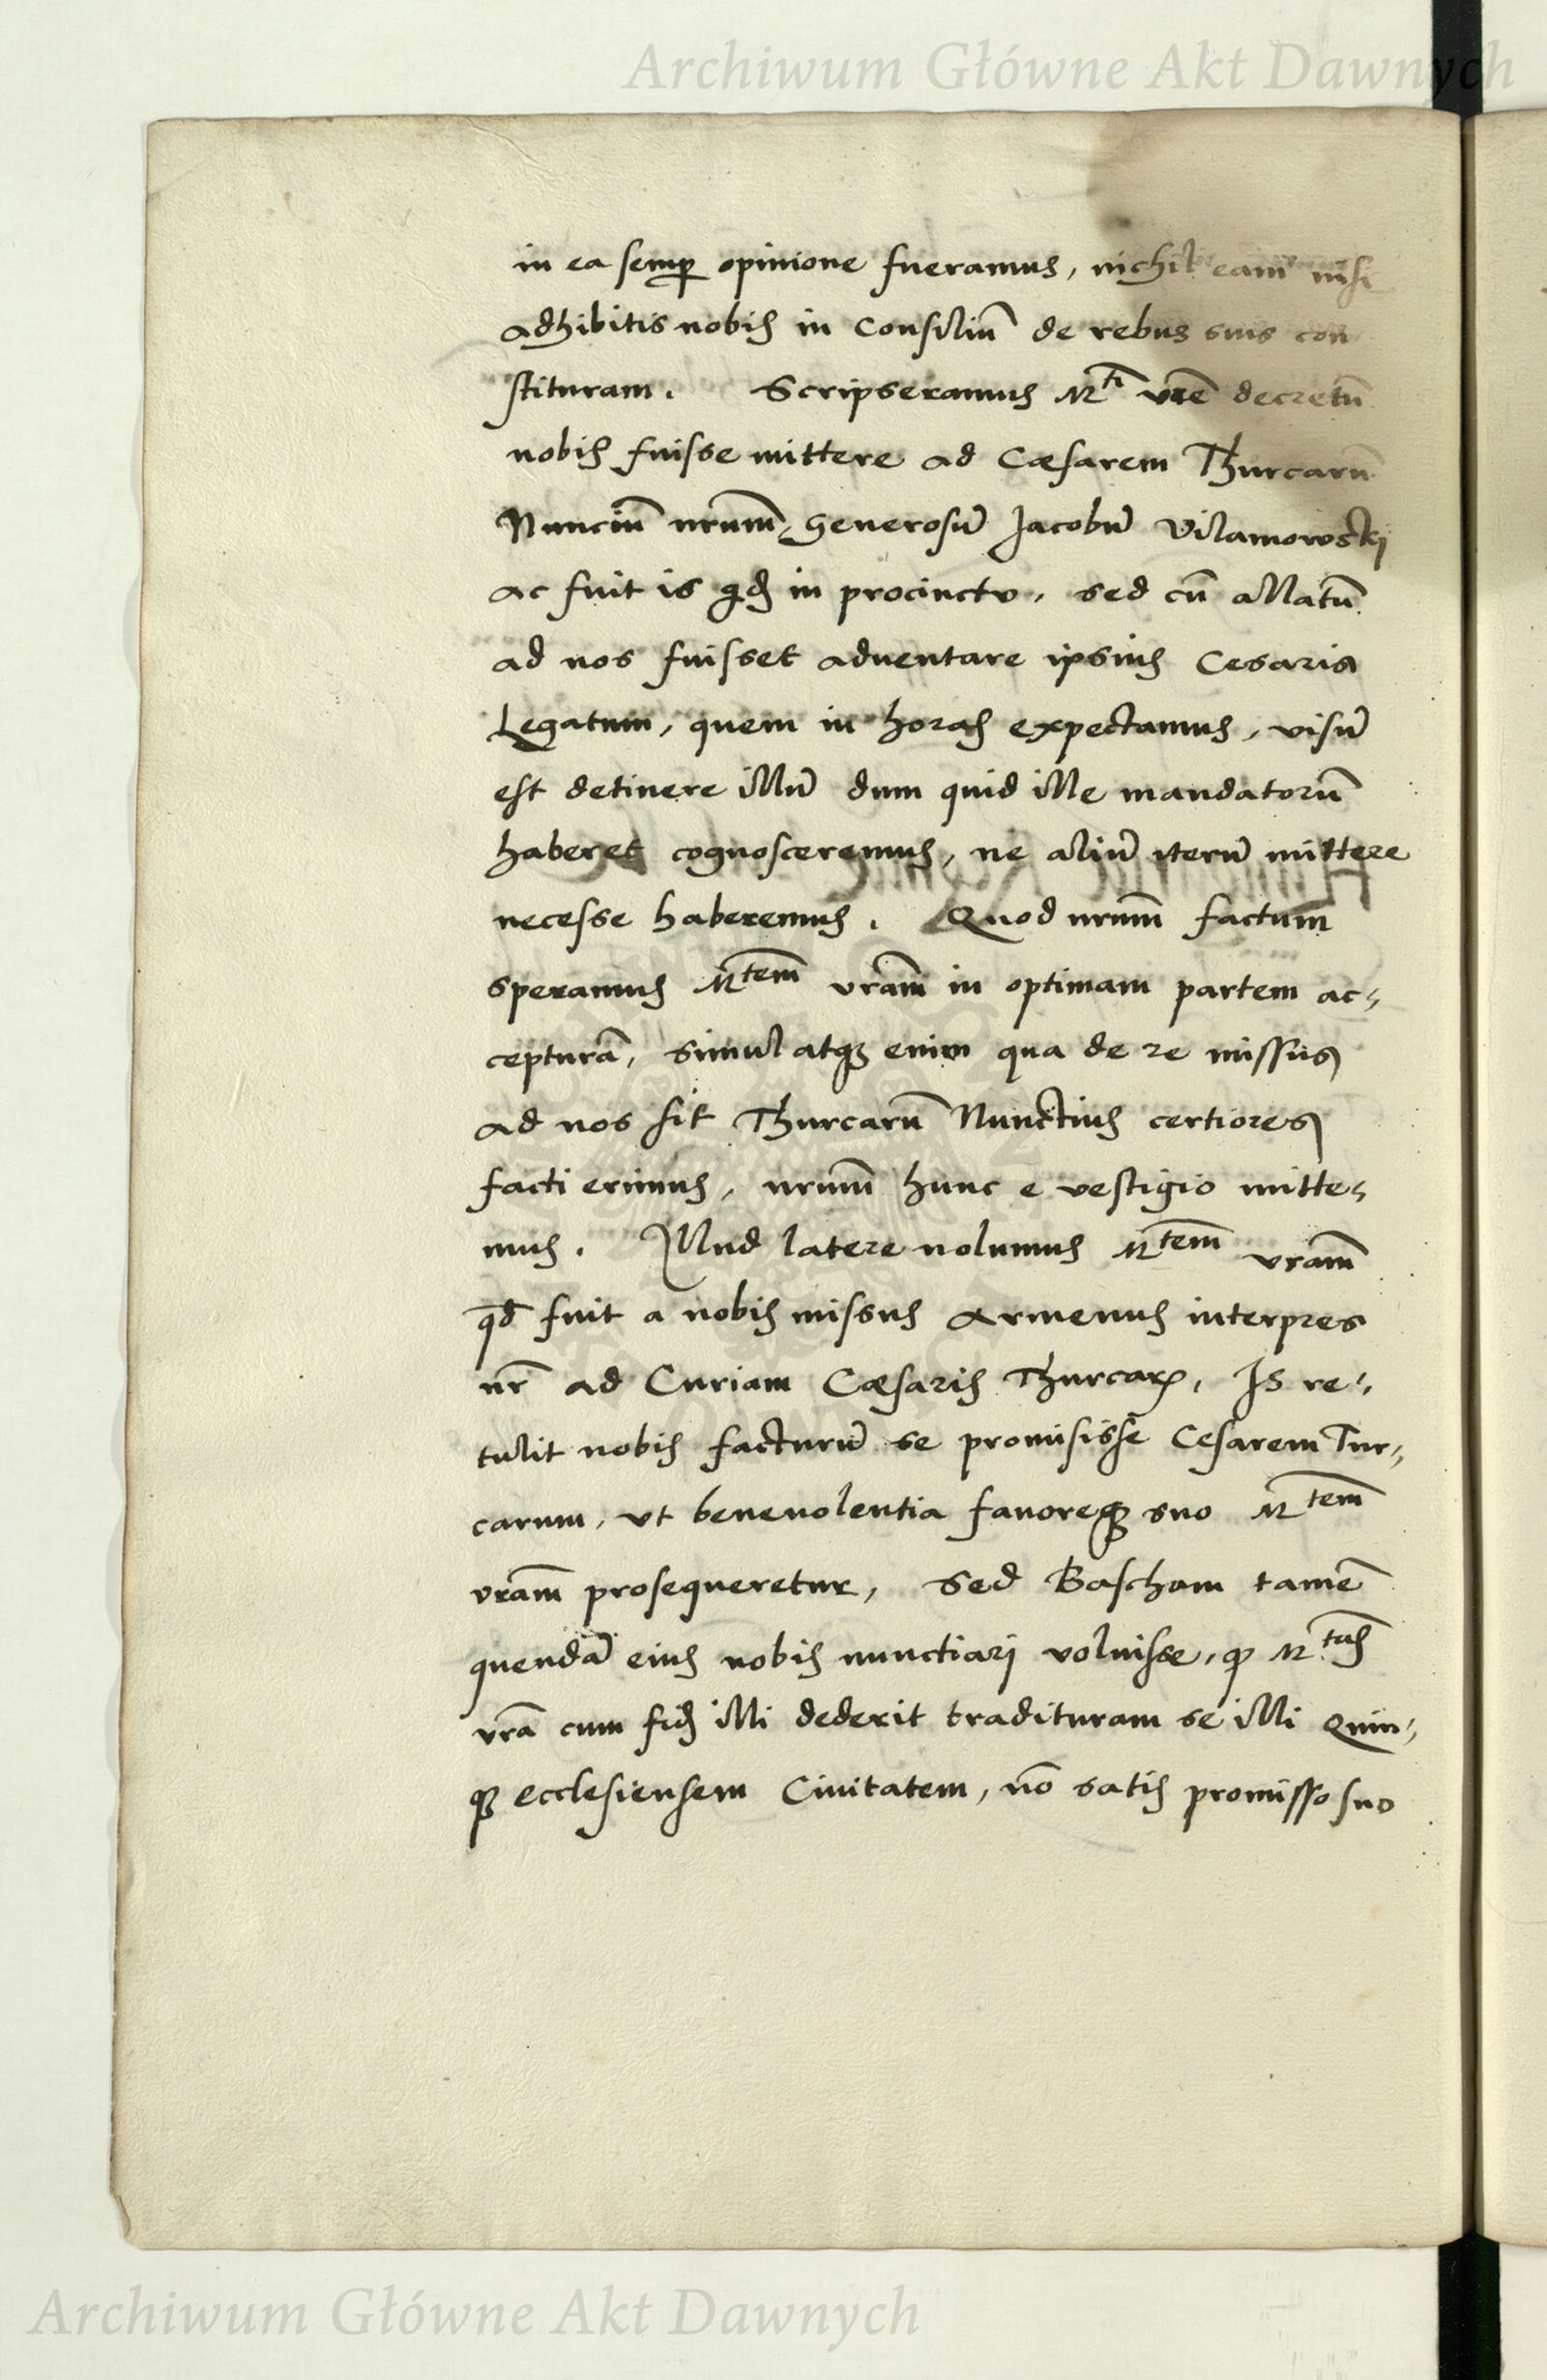 Archiwum Główne Akt Dawnych
in ea semp̱ opinione fueramus, nichil eam nisi
adhibitis nobis in Consiliū de rebus suis con
stituram. Scripseramus M^ti vrē decretū
nobis fuisse mittere ad Cæsarem Thurcarū
Nunciū nrum̄, Generosū Jacobū Vilamowski
ac fuit is qdē in procinctu, sed cū allatū
ad nos fuisset aduentare ipsius Cesaris
Legatum, quem in horas expectamus, visū
est detinere illū dum quid ille mandatorū
haberet cognosceremus, ne aliū iterū mittere
necesse haberemus. Quod nrum̄ factum
speramus M^tem vram̄ in optimam partem ac-
cepturā, simul atqꝫ enim qua de re missus
ad nos sit Thurcarū Nunctius certiores
facti erimus, nrum̄ hunc e vestigio mitte-
mus. Illud latere nolumus M^tem vram̄
qd̄ fuit a nobis missus Armenus interpres
nr̄ ad Curiam Cæsaris Thurcaꝝ, Is re-
tulit nobis facturū se promisisse Cesarem Tur-
carum, vt beneuolentia fauoreqꝫ suo M^tem
vram̄ prosequeretur, Sed Bascham tamē
quendā eius nobis nunctiari voluisse, ꝙ M^tas
vrā cum fidē illi dederit tradituram se illi Quin-
qꝫ ecclesiensem Ciuitatem, nō satis promisso suo
Archiwum Główne Akt Dawnych